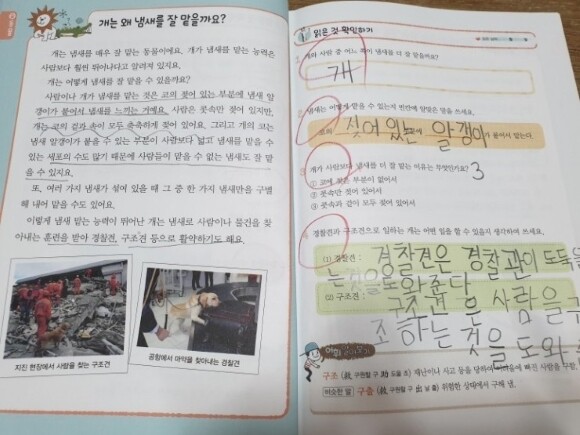 개는 왜 냄새를 잘 맡을까요?
개는 냄새를 매우 잘 맡는 동물이에요. 개가 냄새를 맡는 능력은
사람보다 훨씬 뛰어나다고 알려져 있지요.
개는 어떻게 냄새를 잘 맡을 수 있을까요?
사람이나 개가 냄새를 맡는 것은 코의 젖어 있는 부분에 냄새 알
갱이가 붙어서 냄새를 느끼는 거예요. 사람은 콧속만 젖어 있지만,
개는 코의 겉과 속이 모두 축축하게 젖어 있어요. 그리고 개의 코는
냄새 알갱이가 붙을 수 있는 부분이 사람보다 넓고 냄새를 맡을 수
있는 세포의 수도 많기 때문에 사람들이 맡을 수 없는 냄새도 잘 맡
을 수 있지요.
또, 여러 가지 냄새가 섞여 있을 때 그 중 한 가지 냄새만을 구별
해 내어 맡을 수도 있어요.
이렇게 냄새 맡는 능력이 뛰어난 개는 냄새로 사람이나 물건을 찾
아내는 훈련을 받아 경찰견, 구조견 등으로 활약하기도 해요.
지진 현장에서 사람을 찾는 구조견
공항에서 마약을 찾아내는 경찰견
읽은 것 확인하기
1 개와 사람 중 어느 쪽이 냄새를 더 잘 맡을까요?
개
2 냄새는 어떻게 맡을 수 있는지 빈칸에 알맞은 말을 쓰세요.
코의 젖어 있는 부분에 알갱이가 붙어서 맡는다.
3 개가 사람보다 냄새를 더 잘 맡는 이유는 무엇인가요? 3
① 코에 젖은 부분이 없어서
② 콧속만 젖어 있어서
③ 콧속과 겉이 모두 젖어 있어서
4 경찰견과 구조견으로 일하는 개는 어떤 일을 할 수 있을지 생각하여 쓰세요.
(1) 경찰견 : 경찰견은 경찰관이 도둑을
는것을도와준다
(2) 구조견 : 구조견은 사람을구
조하는것을도와
구조 (救 구원할 구 助 도울 조) 재난이나 사고 등을 당하여 어려움에 빠진 사람을 구함.
비슷한 말 구출 (救 구원할 구 出 날 출) 위험한 상태에서 구해 냄.